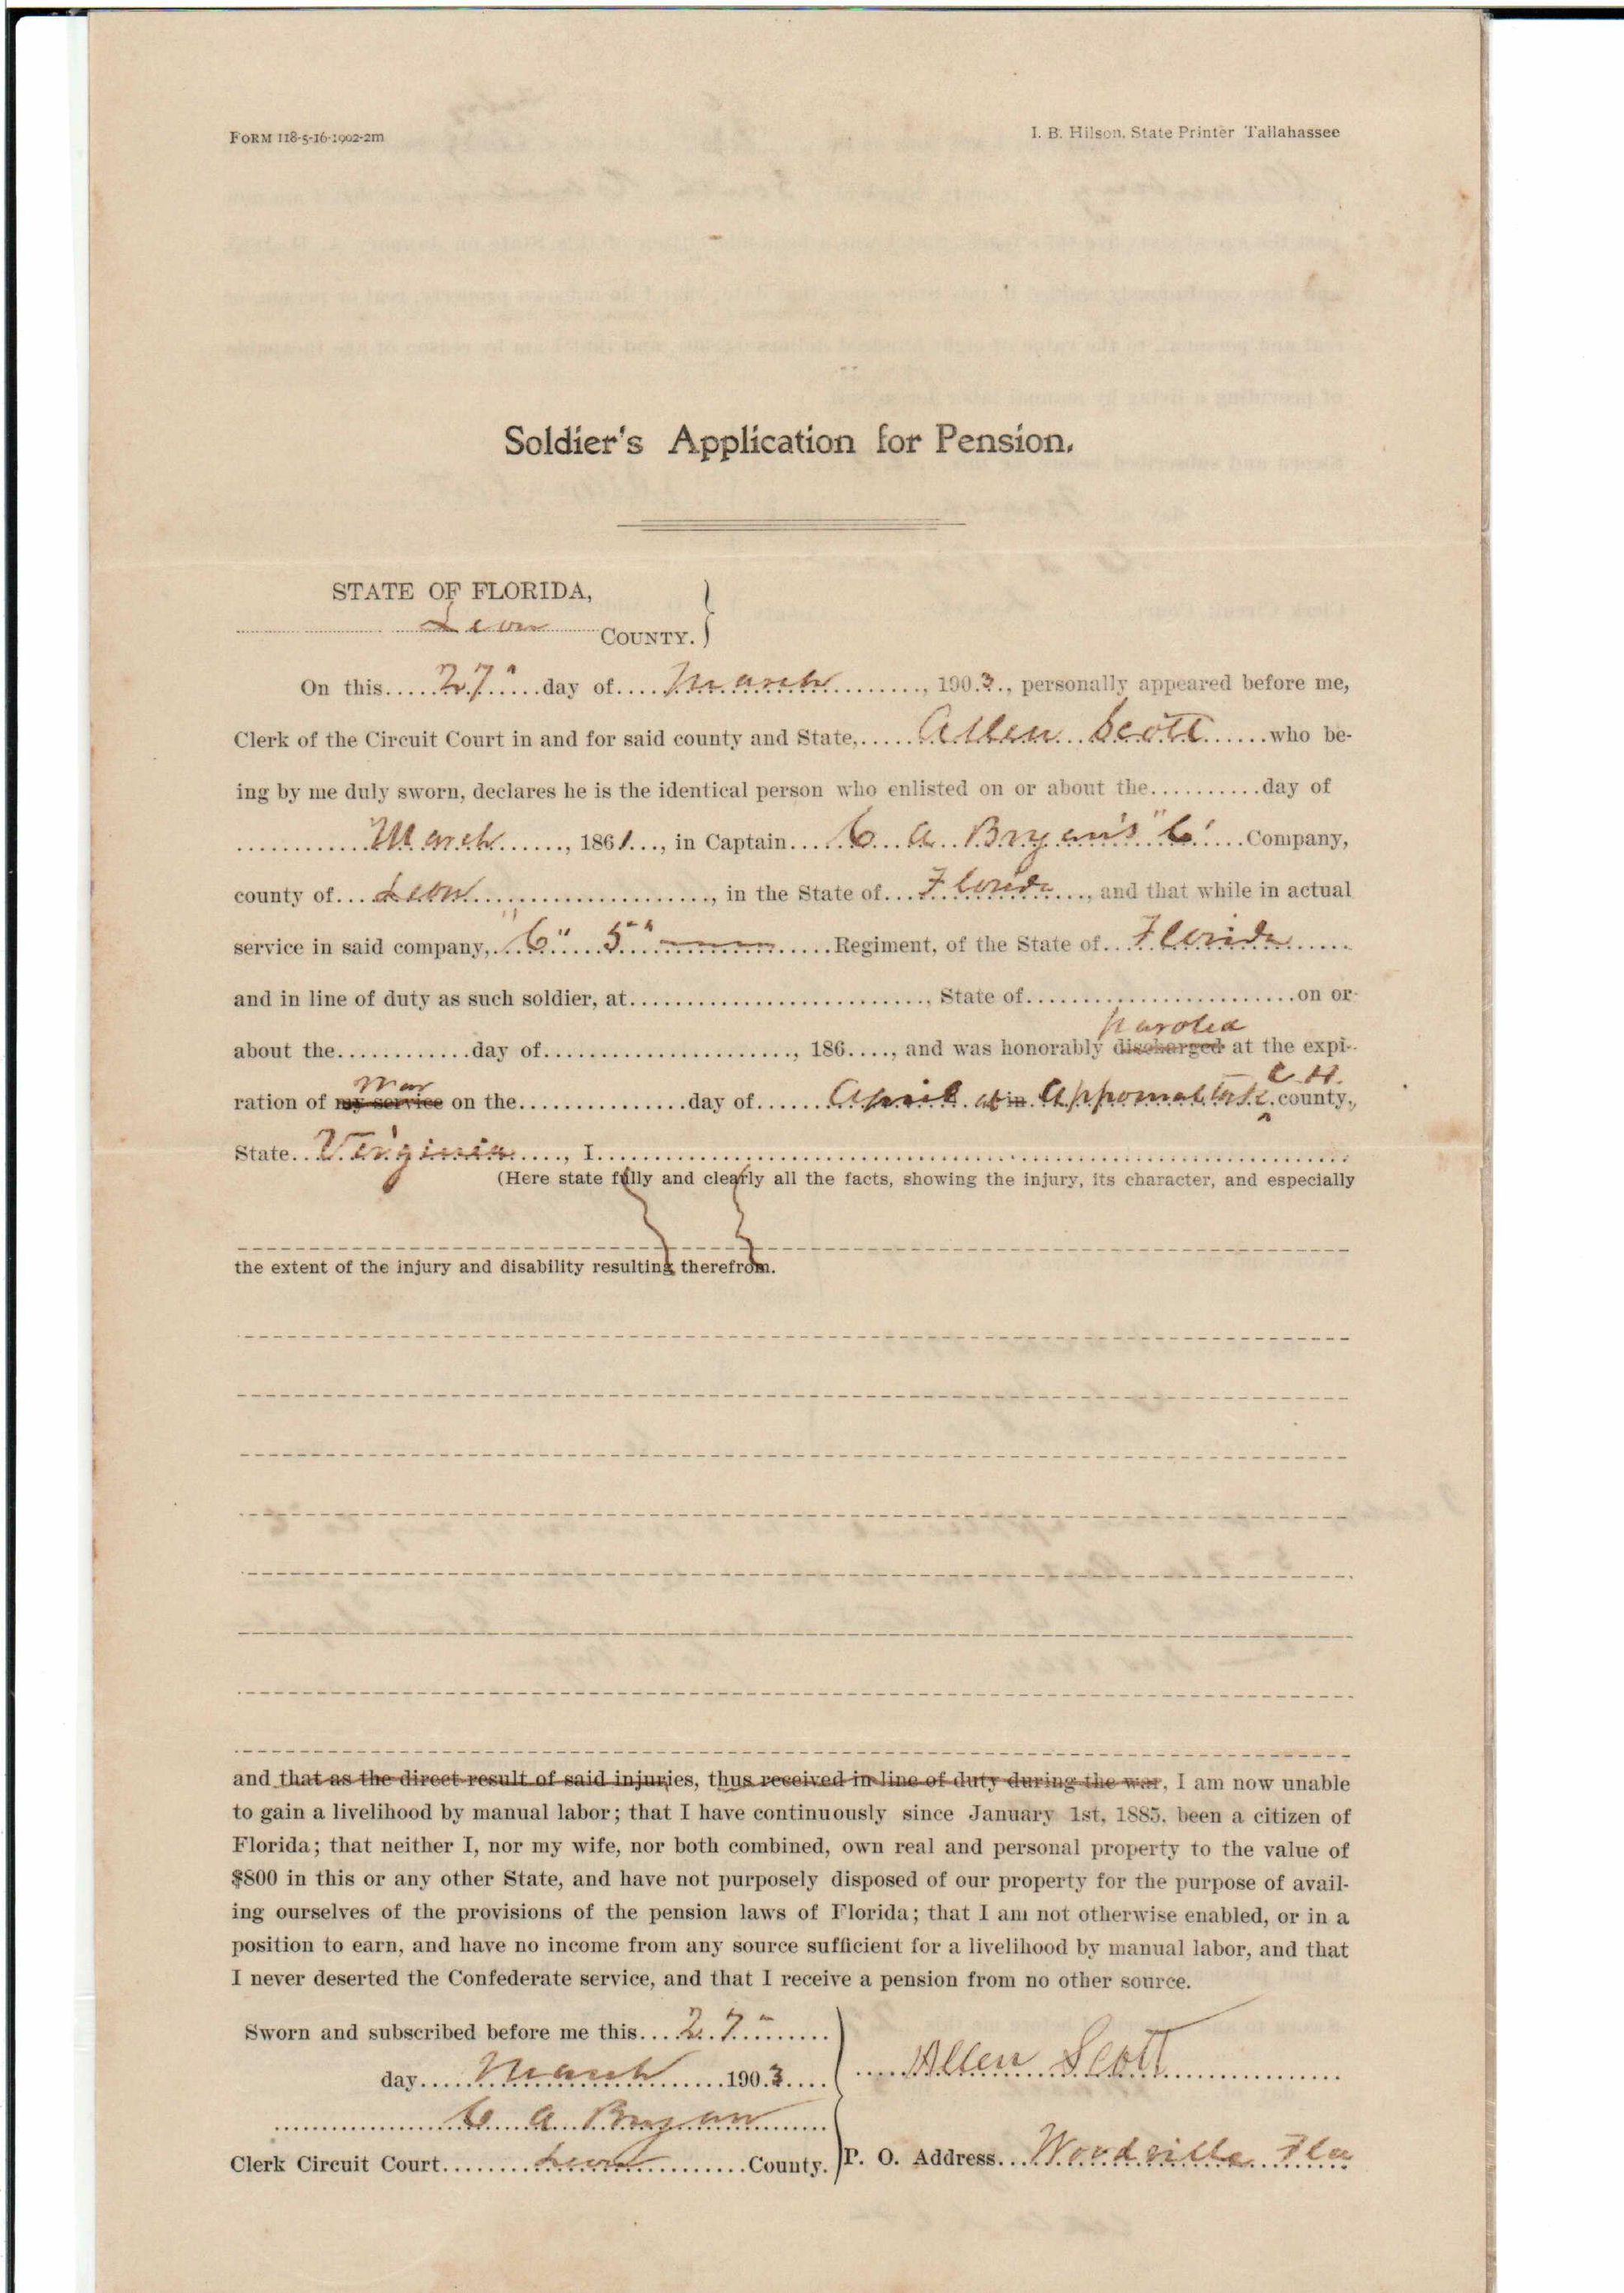 FORM 118-5-16-1902-2m
I. B. Hilson, State Printer Tallahassee
Soldier's Application for Pension.
STATE OF FLORIDA,
Leon COUNTY. }
On this 27" day of March, 1903., personally appeared before me,
Clerk of the Circuit Court in and for said county and State, Allen Scott who be-
ing by me duly sworn, declares he is the identical person who enlisted on or about the..........day of
March, 1861..., in Captain C A Bryan's "C" Company,
county of Leon, in the State of Florida, and that while in actual
service in said company, "C" 5" Regiment, of the State of Florida
and in line of duty as such soldier, at..........................., State of.........................on or
paroled
about the............day of......................., 186...., and was honorably discharged at the expi-
war C. H.
ration of my service on the................day of April at in Appomattox county,
State Virginia, I
(Here state fully and clearly all the facts, showing the injury, its character, and especially
the extent of the injury and disability resulting therefrom.
and that as the direct result of said injuries, thus received in line of duty during the war, I am now unable
to gain a livelihood by manual labor; that I have continuously since January 1st, 1885, been a citizen of
Florida; that neither I, nor my wife, nor both combined, own real and personal property to the value of
$800 in this or any other State, and have not purposely disposed of our property for the purpose of avail-
ing ourselves of the provisions of the pension laws of Florida; that I am not otherwise enabled, or in a
position to earn, and have no income from any source sufficient for a livelihood by manual labor, and that
I never deserted the Confederate service, and that I receive a pension from no other source.
Sworn and subscribed before me this 27"
day March 1903
Allen Scott
C A Bryan
Clerk Circuit Court Leon County.
P. O. Address Woodville Fla